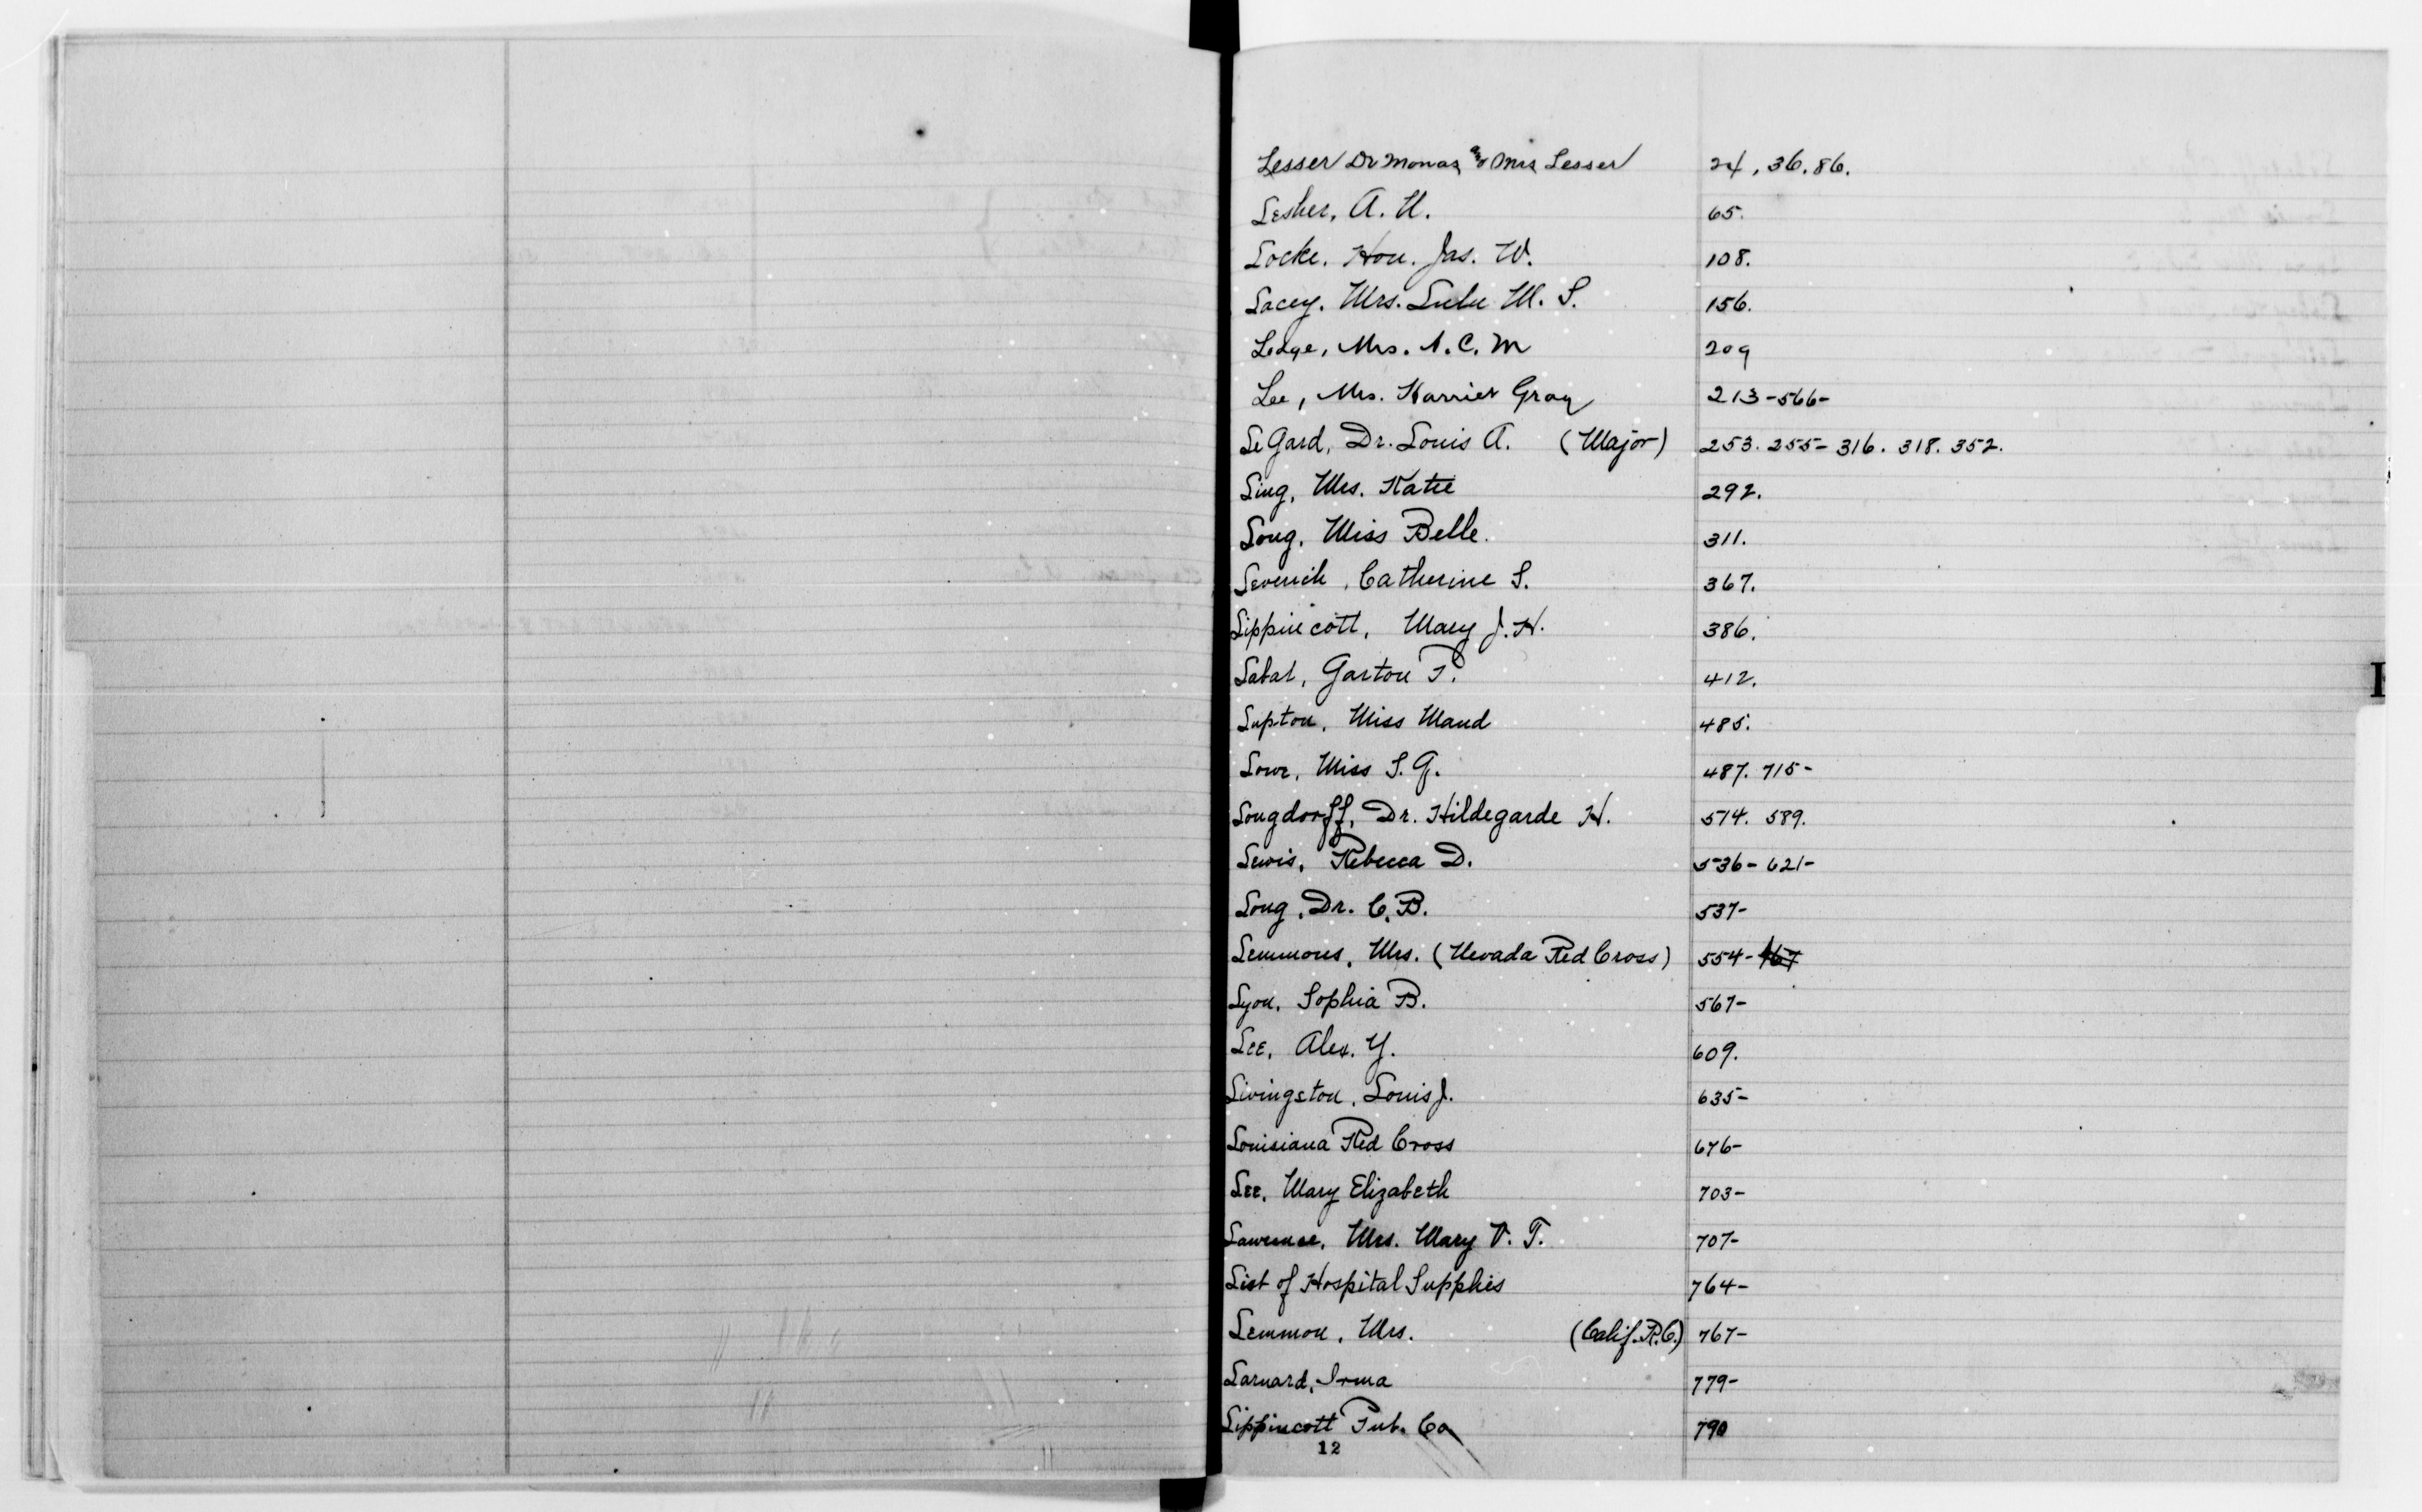 Lesser Dr Monas and Mrs Lesser 24, 36, 86.
Lesher, A. H. 65.
Locke, Hon. Jas. W. 108.
Lacey, Mrs. Lulu M. S. 156.
Ledge, Mrs. A. C. M 209
Lee, Mrs. Harriet Gray 213-566-
LeGard, Dr. Louis A. (Major) 253. 255- 316. 318. 352.
Ling, Mrs. Katie 292.
Long, Miss Belle. 311.
Leverich, Catherine S. 367.
Lippincott, Mary J. H. 386.
Labat, Gaston P. 412.
Lupton, Miss Maud 485.
Lowe, Miss S. G. 487. 715-
Longdorff, Dr. Hildegarde H. 574. 589.
Lewis, Rebecca D. 536- 621-
Long, Dr. C. B. 537-
Lemmons, Mrs. (Nevada Red Cross) 554- 767
Lyon, Sophia B. 567-
Lee, Alex. Y. 609.
Livingston, Louis J. 635-
Louisiana Red Cross 676-
Lee, Mary Elizabeth 703-
Lawrence, Mrs. Mary V. T. 707-
List of Hospital Supplies 764-
Lemmon, Mrs. (Calif. R. C.) 767-
Larnard, Irma 779-
Lippincott Pub. Co 790
12